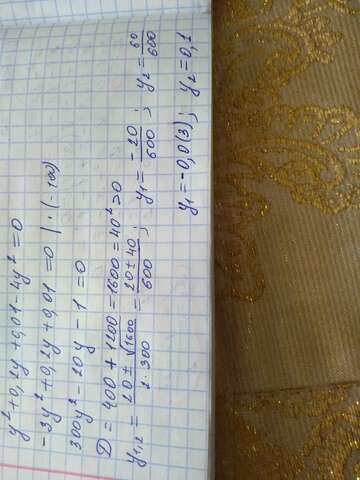 y² + 0,2y + 0,01 - 4y² = 0
-3y² + 0,2y + 0,01 = 0 | · (-100)
300y² - 20y - 1 = 0
D = 400 + 1200 = 1600 = 40² > 0
y₁,₂ = (20 ± √1600)/(2 · 300) = (20 ± 40)/600 ; y₁ = -20/600 ; y₂ = 60/600
y₁ = -0,0(3) ; y₂ = 0,1